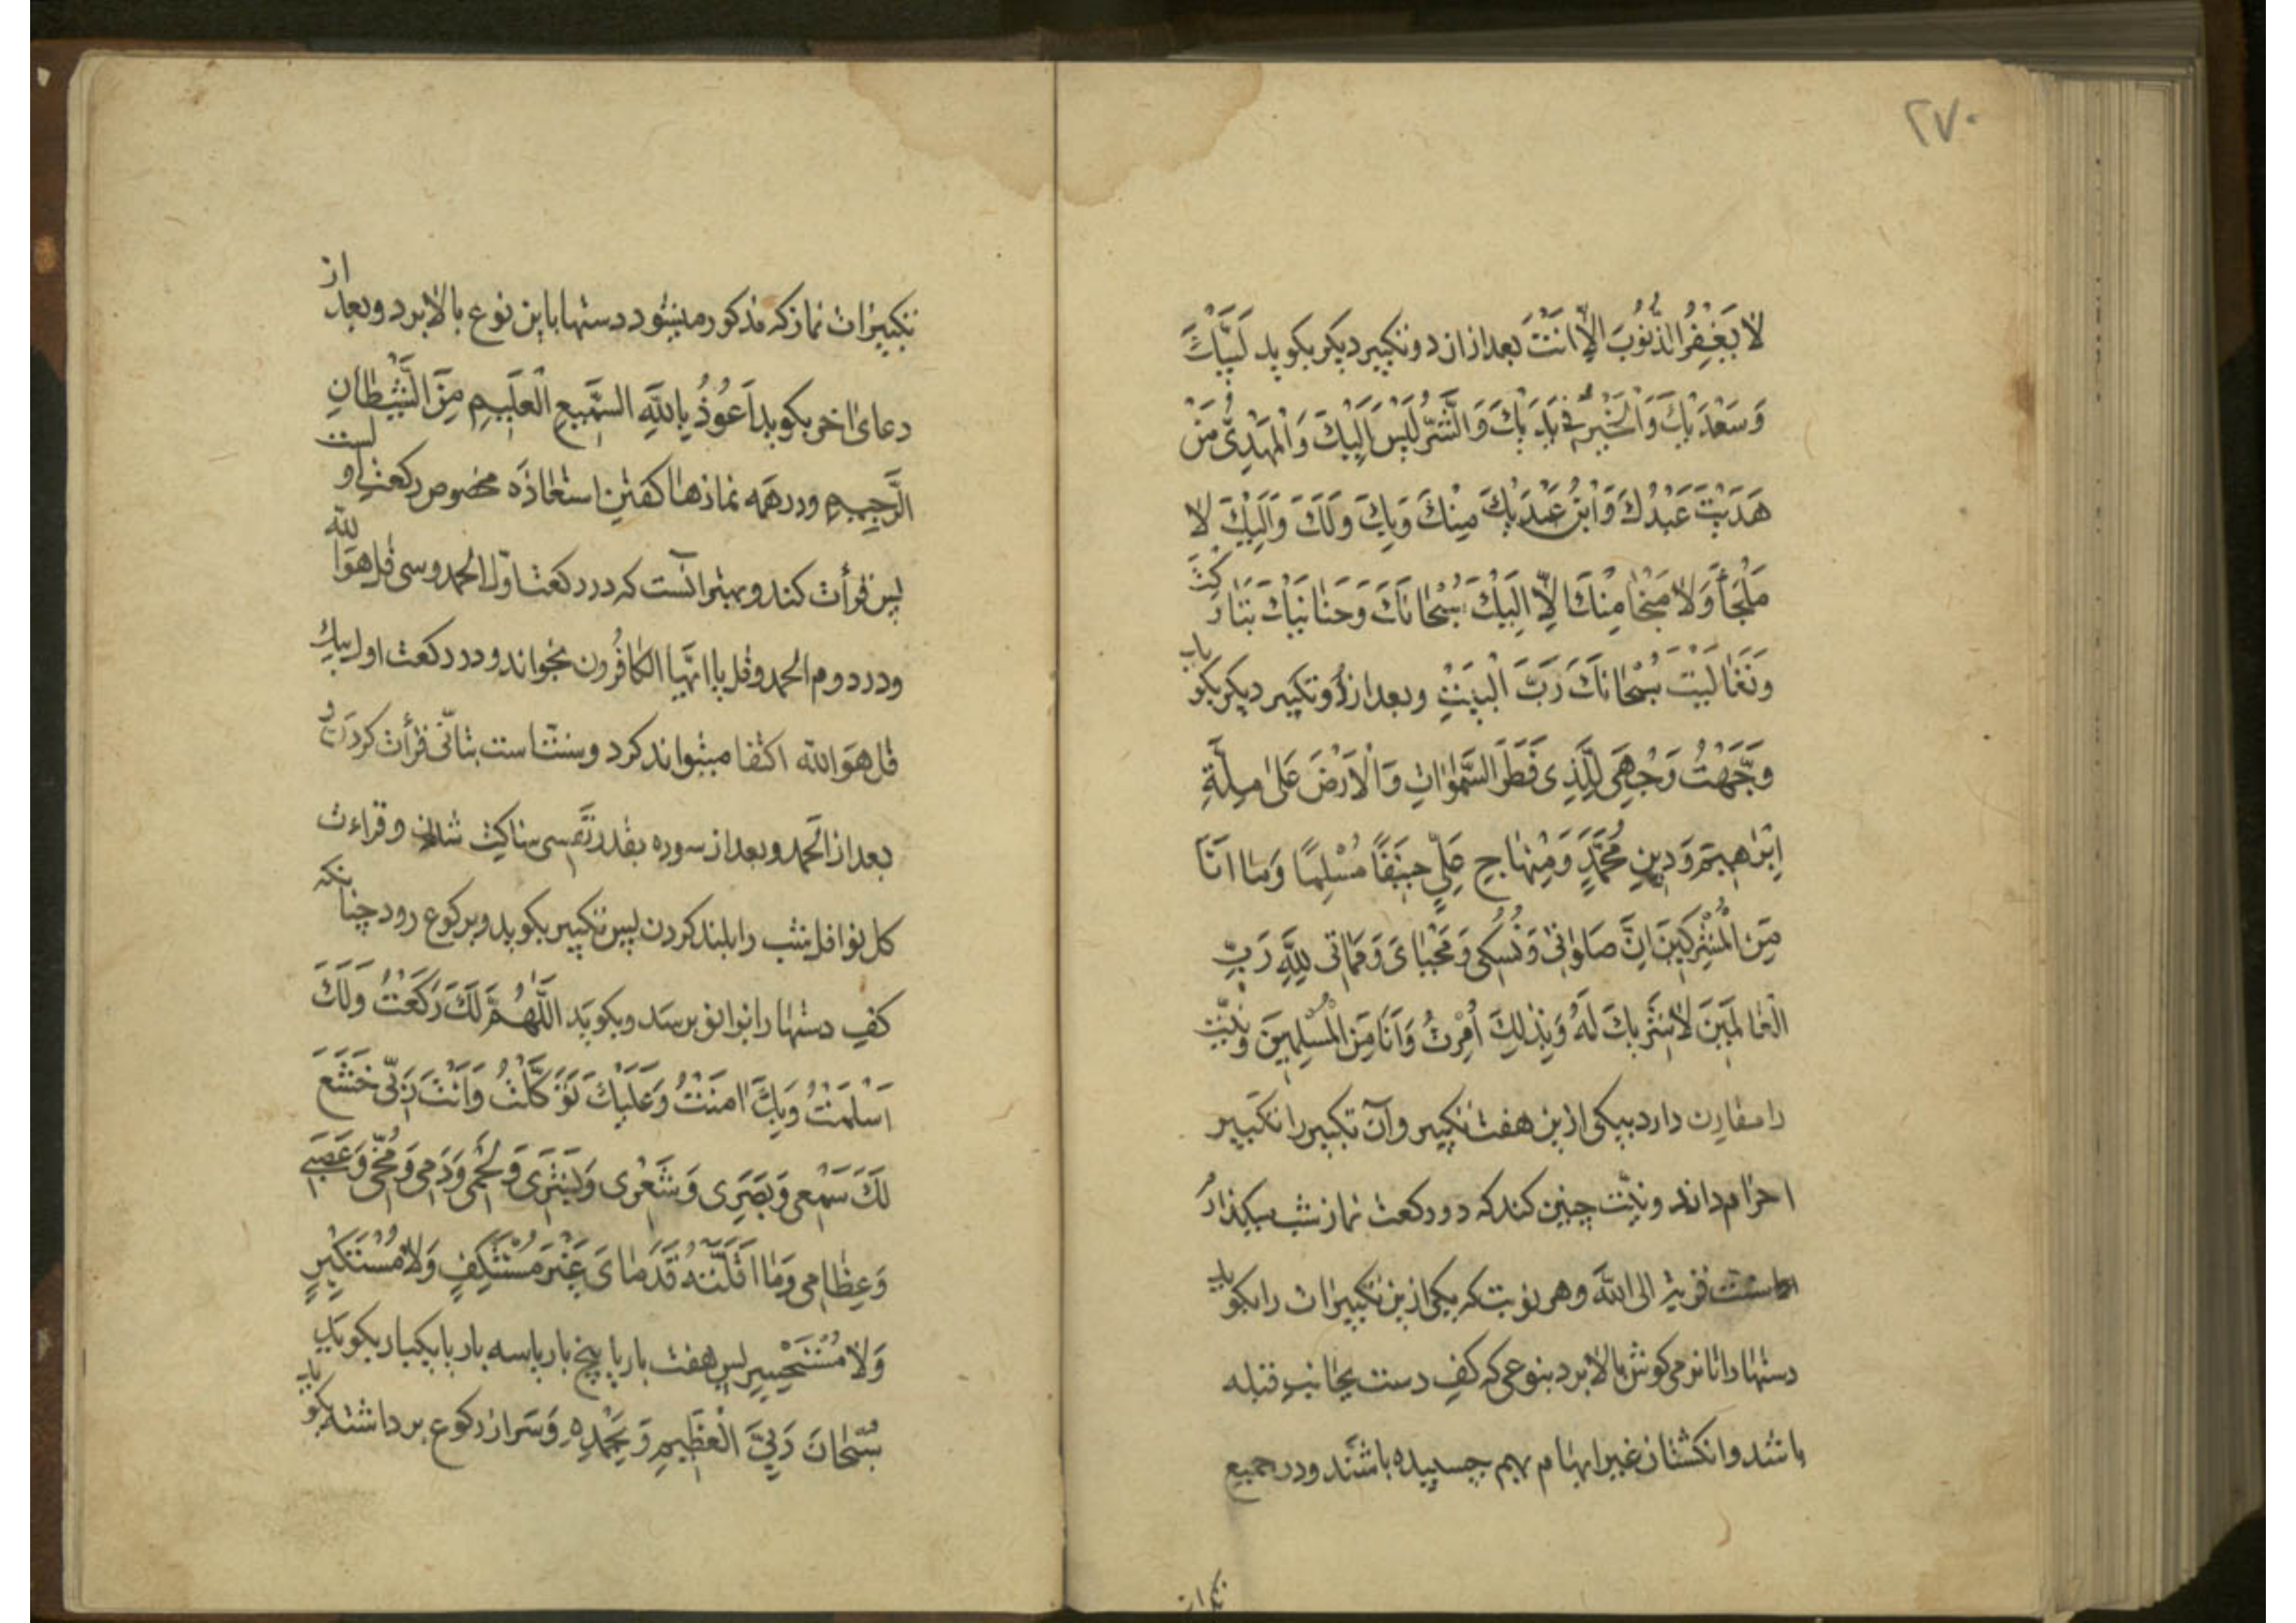 ۲۷۰
لَا يَغْفِرُ الذُّنُوبَ اِلَّا اَنْتَ بعد از ان دو تکبیر دیکر بکوید لَبَّيْكَ
وَسَعْدَيْكَ وَالْخَيْرُ فِي يَدَيْكَ وَالشَّرُّ لَيْسَ اِلَيْكَ وَالْمَهْدِىُّ مَنْ
هَدَيْتَ عَبْدُكَ وَابْنُ عَبْدَيْكَ مِنْكَ وَبِكَ وَلَكَ وَاِلَيْكَ لَا
مَلْجَأَ وَلَا مَنْجَا مِنْكَ اِلَّا اِلَيْكَ سُبْحَانَكَ وَحَنَانَيْكَ تَبَارَكْتَ
وَتَعَالَيْتَ سُبْحَانَكَ رَبَّ الْبَيْتِ وبعد از دو تکبیر دیکر بکوید
وَجَّهْتُ وَجْهِىَ لِلَّذِى فَطَرَ السَّمٰوَاتِ وَالْاَرْضَ عَلىٰ مِلَّةِ
اِبْرَاهِيمَ وَدِينِ مُحَمَّدٍ وَمِنْهَاجِ عَلِيٍّ حَنِيفًا مُسْلِمًا وَمَا اَنَا
مِنَ الْمُشْرِكِينَ اِنَّ صَلوٰاتى وَنُسُكى وَمَحْيَاىَ وَمَمَاتى لِلَّهِ رَبِّ
الْعَالَمِينَ لَا شَرِيكَ لَهُ وَبِذٰلِكَ اُمِرْتُ وَاَنَا مِنَ الْمُسْلِمِينَ وَنیّت
را مقارن دارد بیکی ازین هفت تکبیر وآن تکبیر را تکبیر
احرام داند ونیّت چنین کند که دو رکعت نماز شب میکذارم
سنت قربة الى الله وهر نوبت که یکی ازین تکبیرات را بکوید
دستها را تا نرمی کوش بالا برد بنوعی که کف دست بجانب قبله
باشد وانکشتان غیر ابهام بهم چسبیده باشند ودر جمیع
تکبیرات
تکبیرات نماز که مذکور میشود دستها باین نوع بالا برد وبعد از
دعای اخر بکوید اَعُوذُ بِاللَّهِ السَّمِيعِ الْعَلِيمِ مِنَ الشَّيْطَانِ
الرَّجِيمِ ودر همه نمازها کفتن استعاذه مخصوص رکعت اولست
پس قرأت کند وبهتر انست که در رکعت اوّل الحمد وسی قل هو الله
ودر دوم الحمد وقل یا ایّها الکافرون بخواند ودر رکعت اول بیك
قل هو الله اکتفا میتواند کرد وسنّت است بتأنّی قرأت کردن و
بعد از الحمد وبعد از سوره بقدر نَفَسی ساکت شدن وقراءت
کل نوافل شب را بلند کردن پس تکبیر بکوید وبرکوع رود چنانکه
کف دستها را بزانو برسد وبکوید اَللَّهُمَّ لَكَ رَكَعْتُ وَلَكَ
اَسْلَمْتُ وَبِكَ اٰمَنْتُ وَعَلَيْكَ تَوَكَّلْتُ وَاَنْتَ رَبّى خَشَعَ
لَكَ سَمْعى وَبَصَرى وَشَعْرى وَبَشَرى وَلَحْمى وَدَمى وَمُخّى وَعَصَبى
وَعِظَامى وَمَا اَقَلَّتْهُ قَدَمَاىَ غَيْرَ مُسْتَنْكِفٍ وَلَا مُسْتَكْبِرٍ
وَلَا مُسْتَحْسِرٍ پس هفت بار یا پنج بار یا سه بار یا یکبار بکوید
سُبْحَانَ رَبِّيَ الْعَظِيمِ وَبِحَمْدِهِ وسر از رکوع برداشته بکوید